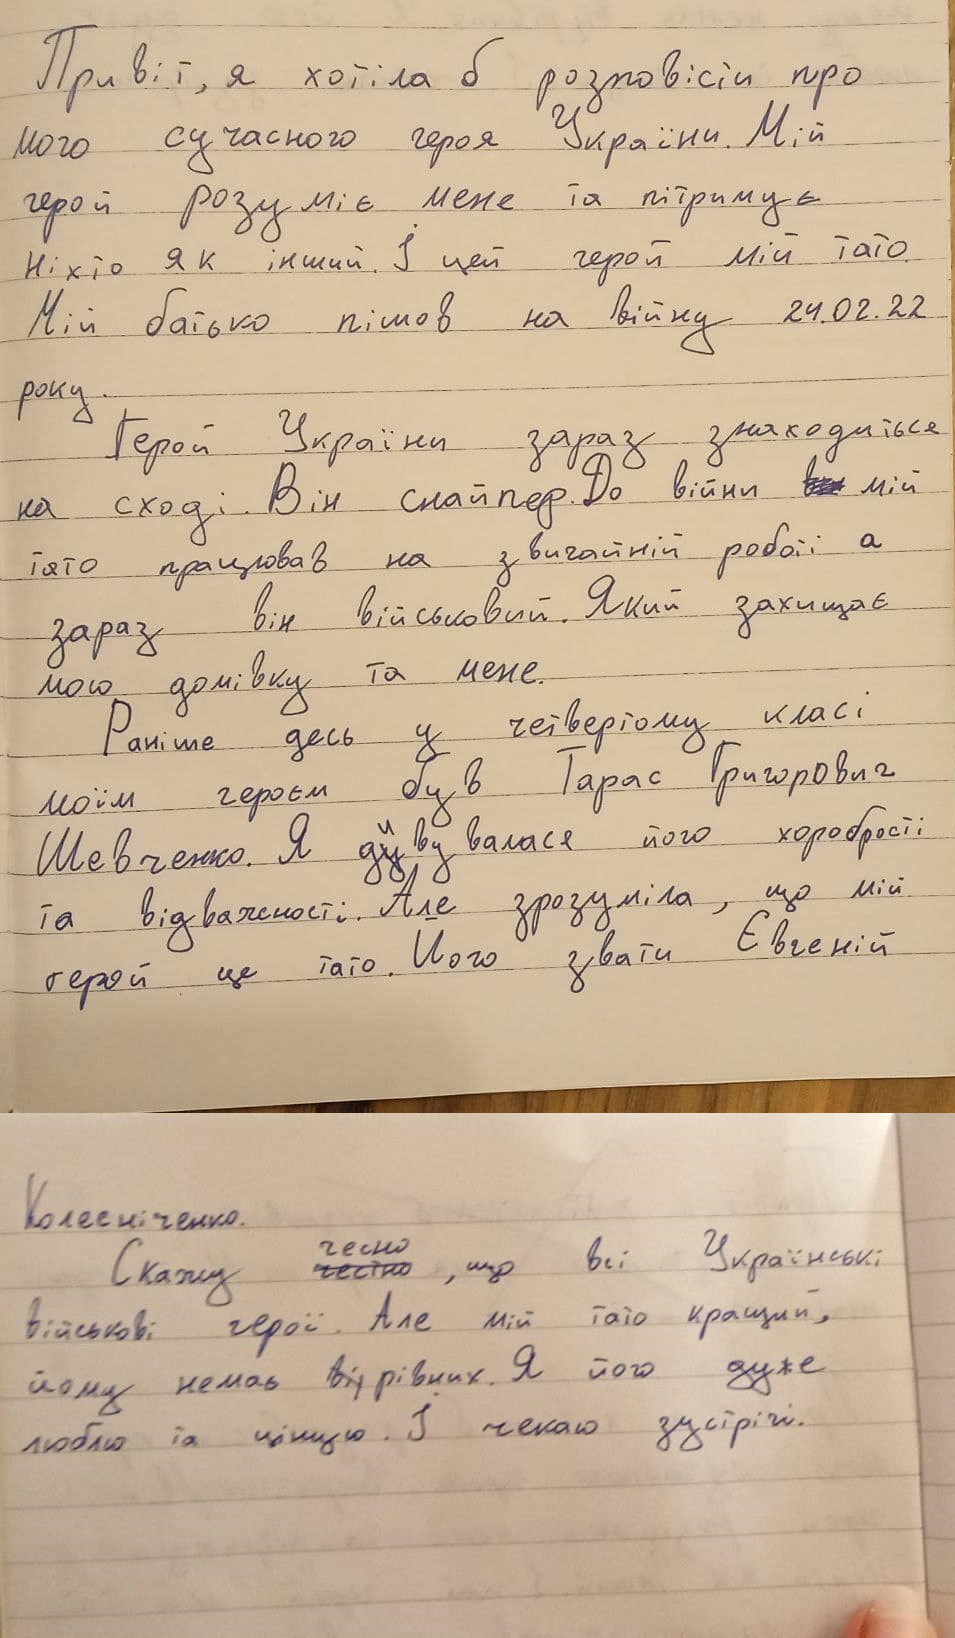 Привіт, я хотіла б розповісти про
мого сучасного героя України. Мій
герой розуміє мене та пітримує
ніхто як інший. І цей герой мій тато.
Мій батько пішов на війну 24.02.22
року.
Герой України зараз знаходиться
на сході. Він снайпер. До війни мій
тато працював на звичайній роботі а
зараз він військовий. Який захищає
мою домівку та мене.
Раніше десь у четвертому класі
моїм героєм був Тарас Григорович
Шевченко. Я дивувалася його хоробрості
та відважності. Але зрозуміла, що мій
герой це тато. Його звати Євгеній
Колесніченко.
Скажу чесно, що всі Українські
військові герої. Але мій тато кращий,
йому немає рівних. Я його дуже
люблю та ціную. І чекаю зустрічі.